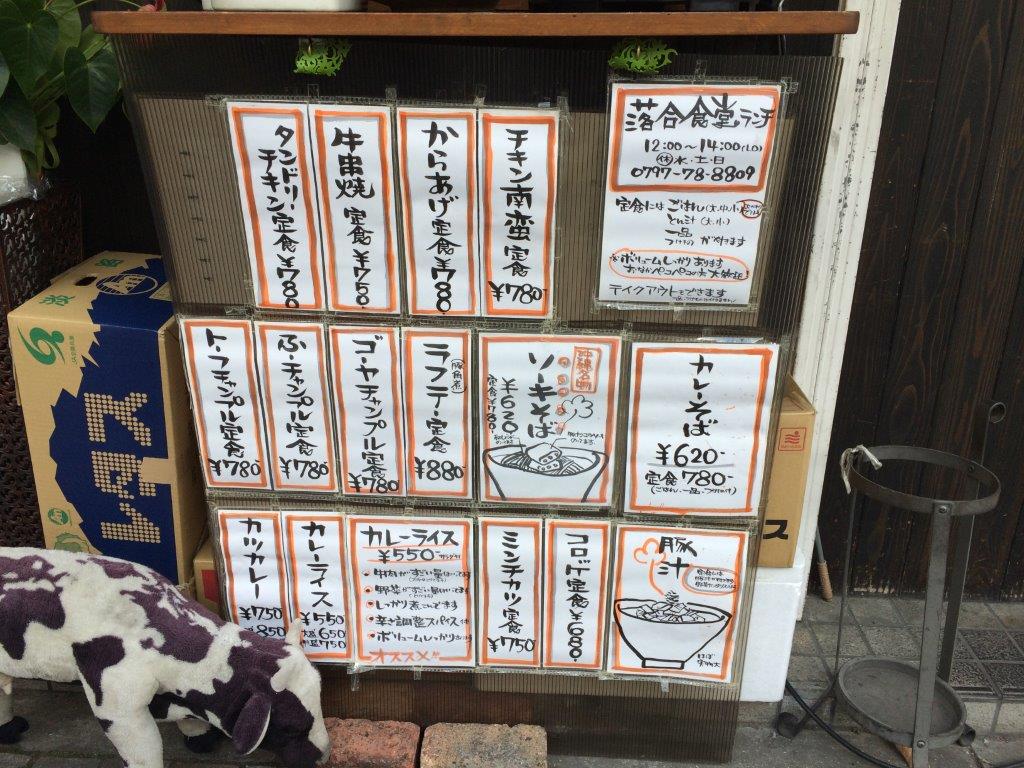 タンドリー
チキン定食 ¥780
牛串焼 定食 ¥750
からあげ定食 ¥780
チキン南蛮定食 ¥780-
落合食堂ランチ
12:00〜14:00(LO)
㊡水・土・日
0797-78-8809
定食には ごはん(大・中・小)
とん汁(大・小)
一品
つけもの が付きます
ボリュームしっかりあります
おなかペコペコの方大歓迎!
テイクアウトもできます
トーフチャンプル定食 ¥780-
ふーチャンプル定食 ¥780-
ゴーヤチャンプル定食 ¥780
ラフテー定食 ¥880-
(豚角煮)
沖縄名物
ソーキそば
¥620-
定食¥780-
カレーそば
¥620-
定食780-
(ごはん、一品、つけもの付)
カツカレー
¥750
850
カレーライス
¥550
大盛650
750
カレーライス
¥550-
牛肉がすごい量
野菜がすごい量
しっかり煮こんでます
辛さ調整スパイス付
ボリュームしっかり
オススメ!!
ミンチカツ定食 ¥750
コロッケ定食 ¥680-
豚汁
ス